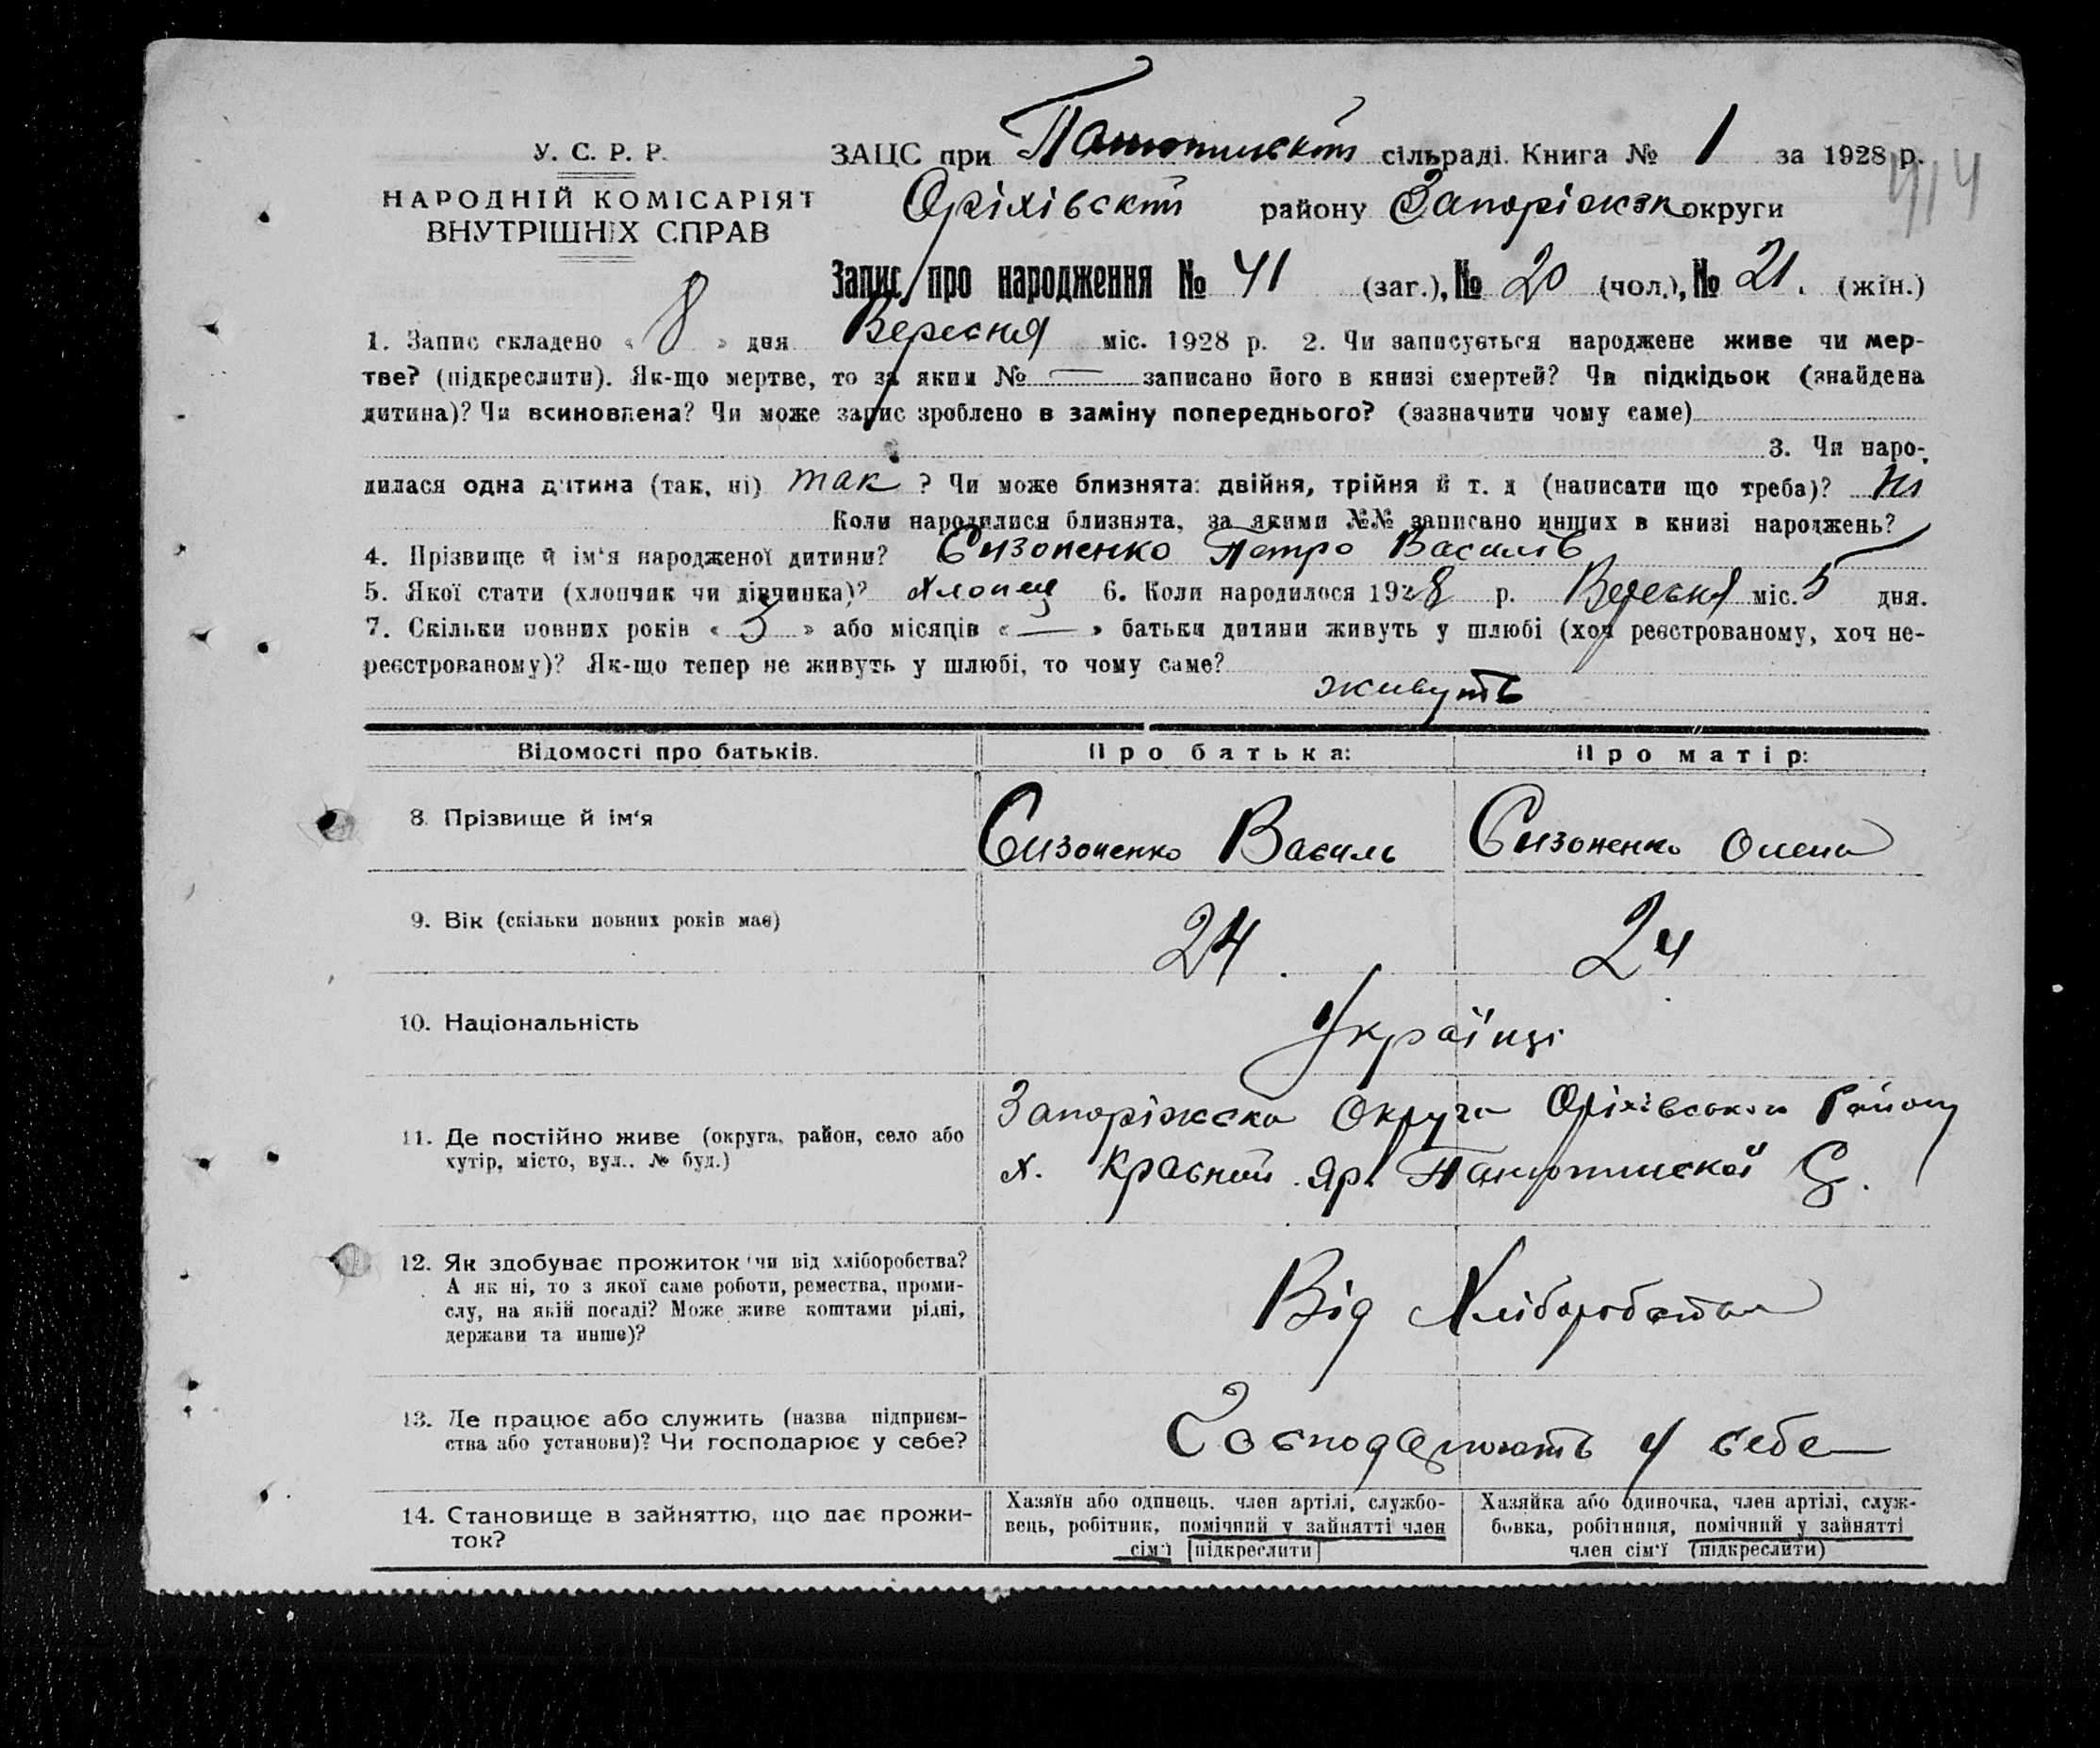 У. С. Р. Р.
НАРОДНІЙ КОМІСАРІЯТ
ВНУТРІШНІХ СПРАВ
ЗАЦС при сільраді. Книга № 1 за 1928 р.
414
Оріхівскій району Запоріжск округи
Запис про народження № 41 (заг.), № 20 (чол.), № 21. (жін.)
1. Запис складено « 8 » дня Вересня міс. 1928 р. 2. Чи записується народжене живе чи мер-
тве? (підкреслити). Як-що мертве, то за яким № — записано його в книзі смертей? Чи підкідьок (знайдена
дитина)? Чи всиновлена? Чи може запис зроблено в заміну попереднього? (зазначити чому саме)
3. Чи наро-
дилася одна дитина (так, ні) так ? Чи може близнята: двійня, трійня й т. д (написати що треба)? ні
Коли народилися близнята, за якими №№ записано инших в книзі народжень? —
4. Прізвище й ім'я народженої дитини? Сизоненко Петро Василів
5. Якої стати (хлопчик чи дівчинка)? хлопец 6. Коли народилося 1928 р. Вересня міс. 5 дня.
7. Скільки повних років « 3 » або місяців « — » батьки дитини живуть у шлюбі (хоч реєстрованому, хоч не-
реєстрованому)? Як-що тепер не живуть у шлюбі, то чому саме?
живуть
Відомості про батьків. Про батька: Про матір:
8. Прізвище й ім'я Сизоненко Василь Сизоненко Олена
9. Вік (скільки повних років має) 24. 24
10. Національність Українці
11. Де постійно живе (округа, район, село або
хутір, місто, вул., № буд.)
Запоріжска Округа Оріхівського Району
х. Красний Яр. Панютинской С.
12. Як здобуває прожиток чи від хліборобства?
А як ні, то з якої саме роботи, ремества, проми-
слу, на якій посаді? Може живе коштами рідні,
держави та инше)?
Від Хліборобства
13. Де працює або служить (назва підприєм-
ства або установи)? Чи господарює у себе?
Господарюють у себе
14. Становище в зайняттю, що дає прожи-
ток?
Хазяїн або одинець, член артілі, службо-
вець, робітник, помічний у зайнятті член
сім'ї [підкреслити]
Хазяйка або одиночка, член артілі, служ-
бовка, робітниця, помічний у зайнятті
член сім'ї (підкреслити)